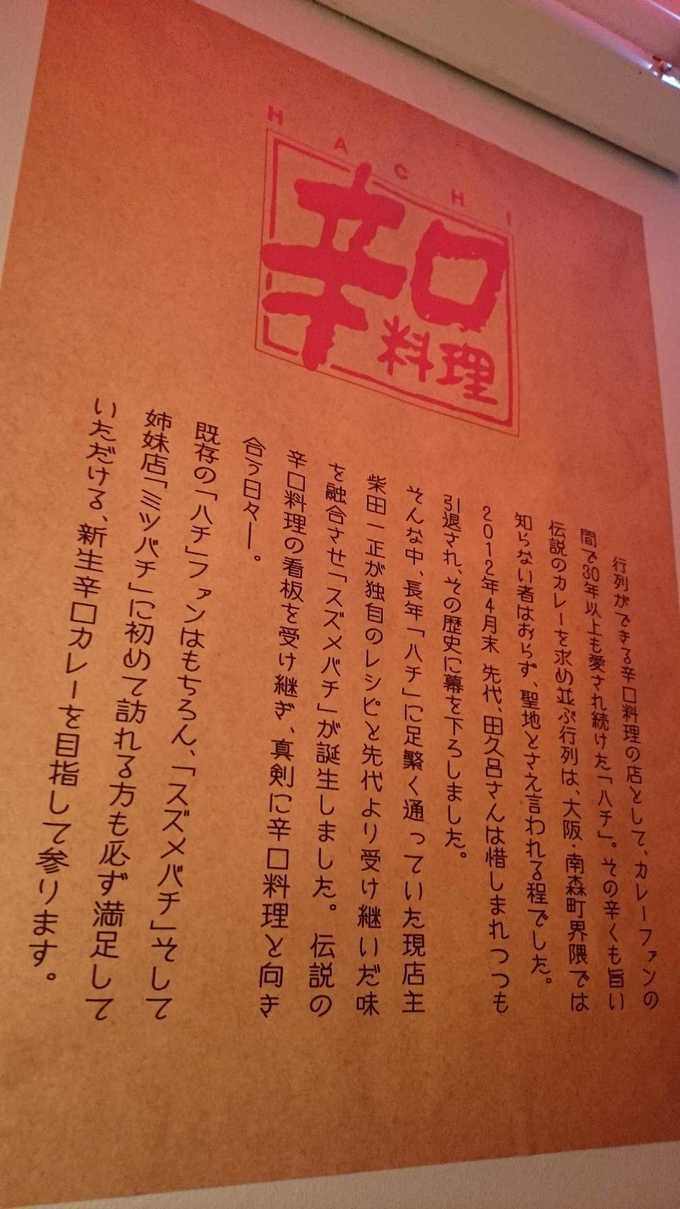 HACHI
辛口
料理
行列ができる辛口料理の店として、カレーファンの
間で30年以上も愛され続けた「ハチ」。その辛くも旨い
伝説のカレーを求め並ぶ行列は、大阪・南森町界隈では
知らない者はおらず、聖地とさえ言われる程でした。
2012年4月末 先代、田久呂さんは惜しまれつつも
引退され、その歴史に幕を下ろしました。
そんな中、長年「ハチ」に足繁く通っていた現店主
柴田一正が独自のレシピと先代より受け継いだ味
を融合させ「スズメバチ」が誕生しました。伝説の
辛口料理の看板を受け継ぎ、真剣に辛口料理と向き
合う日々―。
既存の「ハチ」ファンはもちろん、「スズメバチ」そして
姉妹店「ミツバチ」に初めて訪れる方も必ず満足して
いただける、新生辛口カレーを目指して参ります。